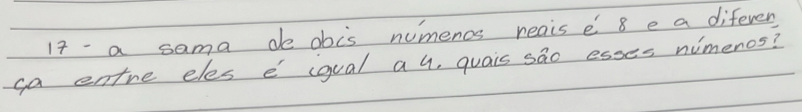 17 - a sama de obis númenos reais é 8 e a diferen
ça entre eles é igual a 4. quais são esses númenos?